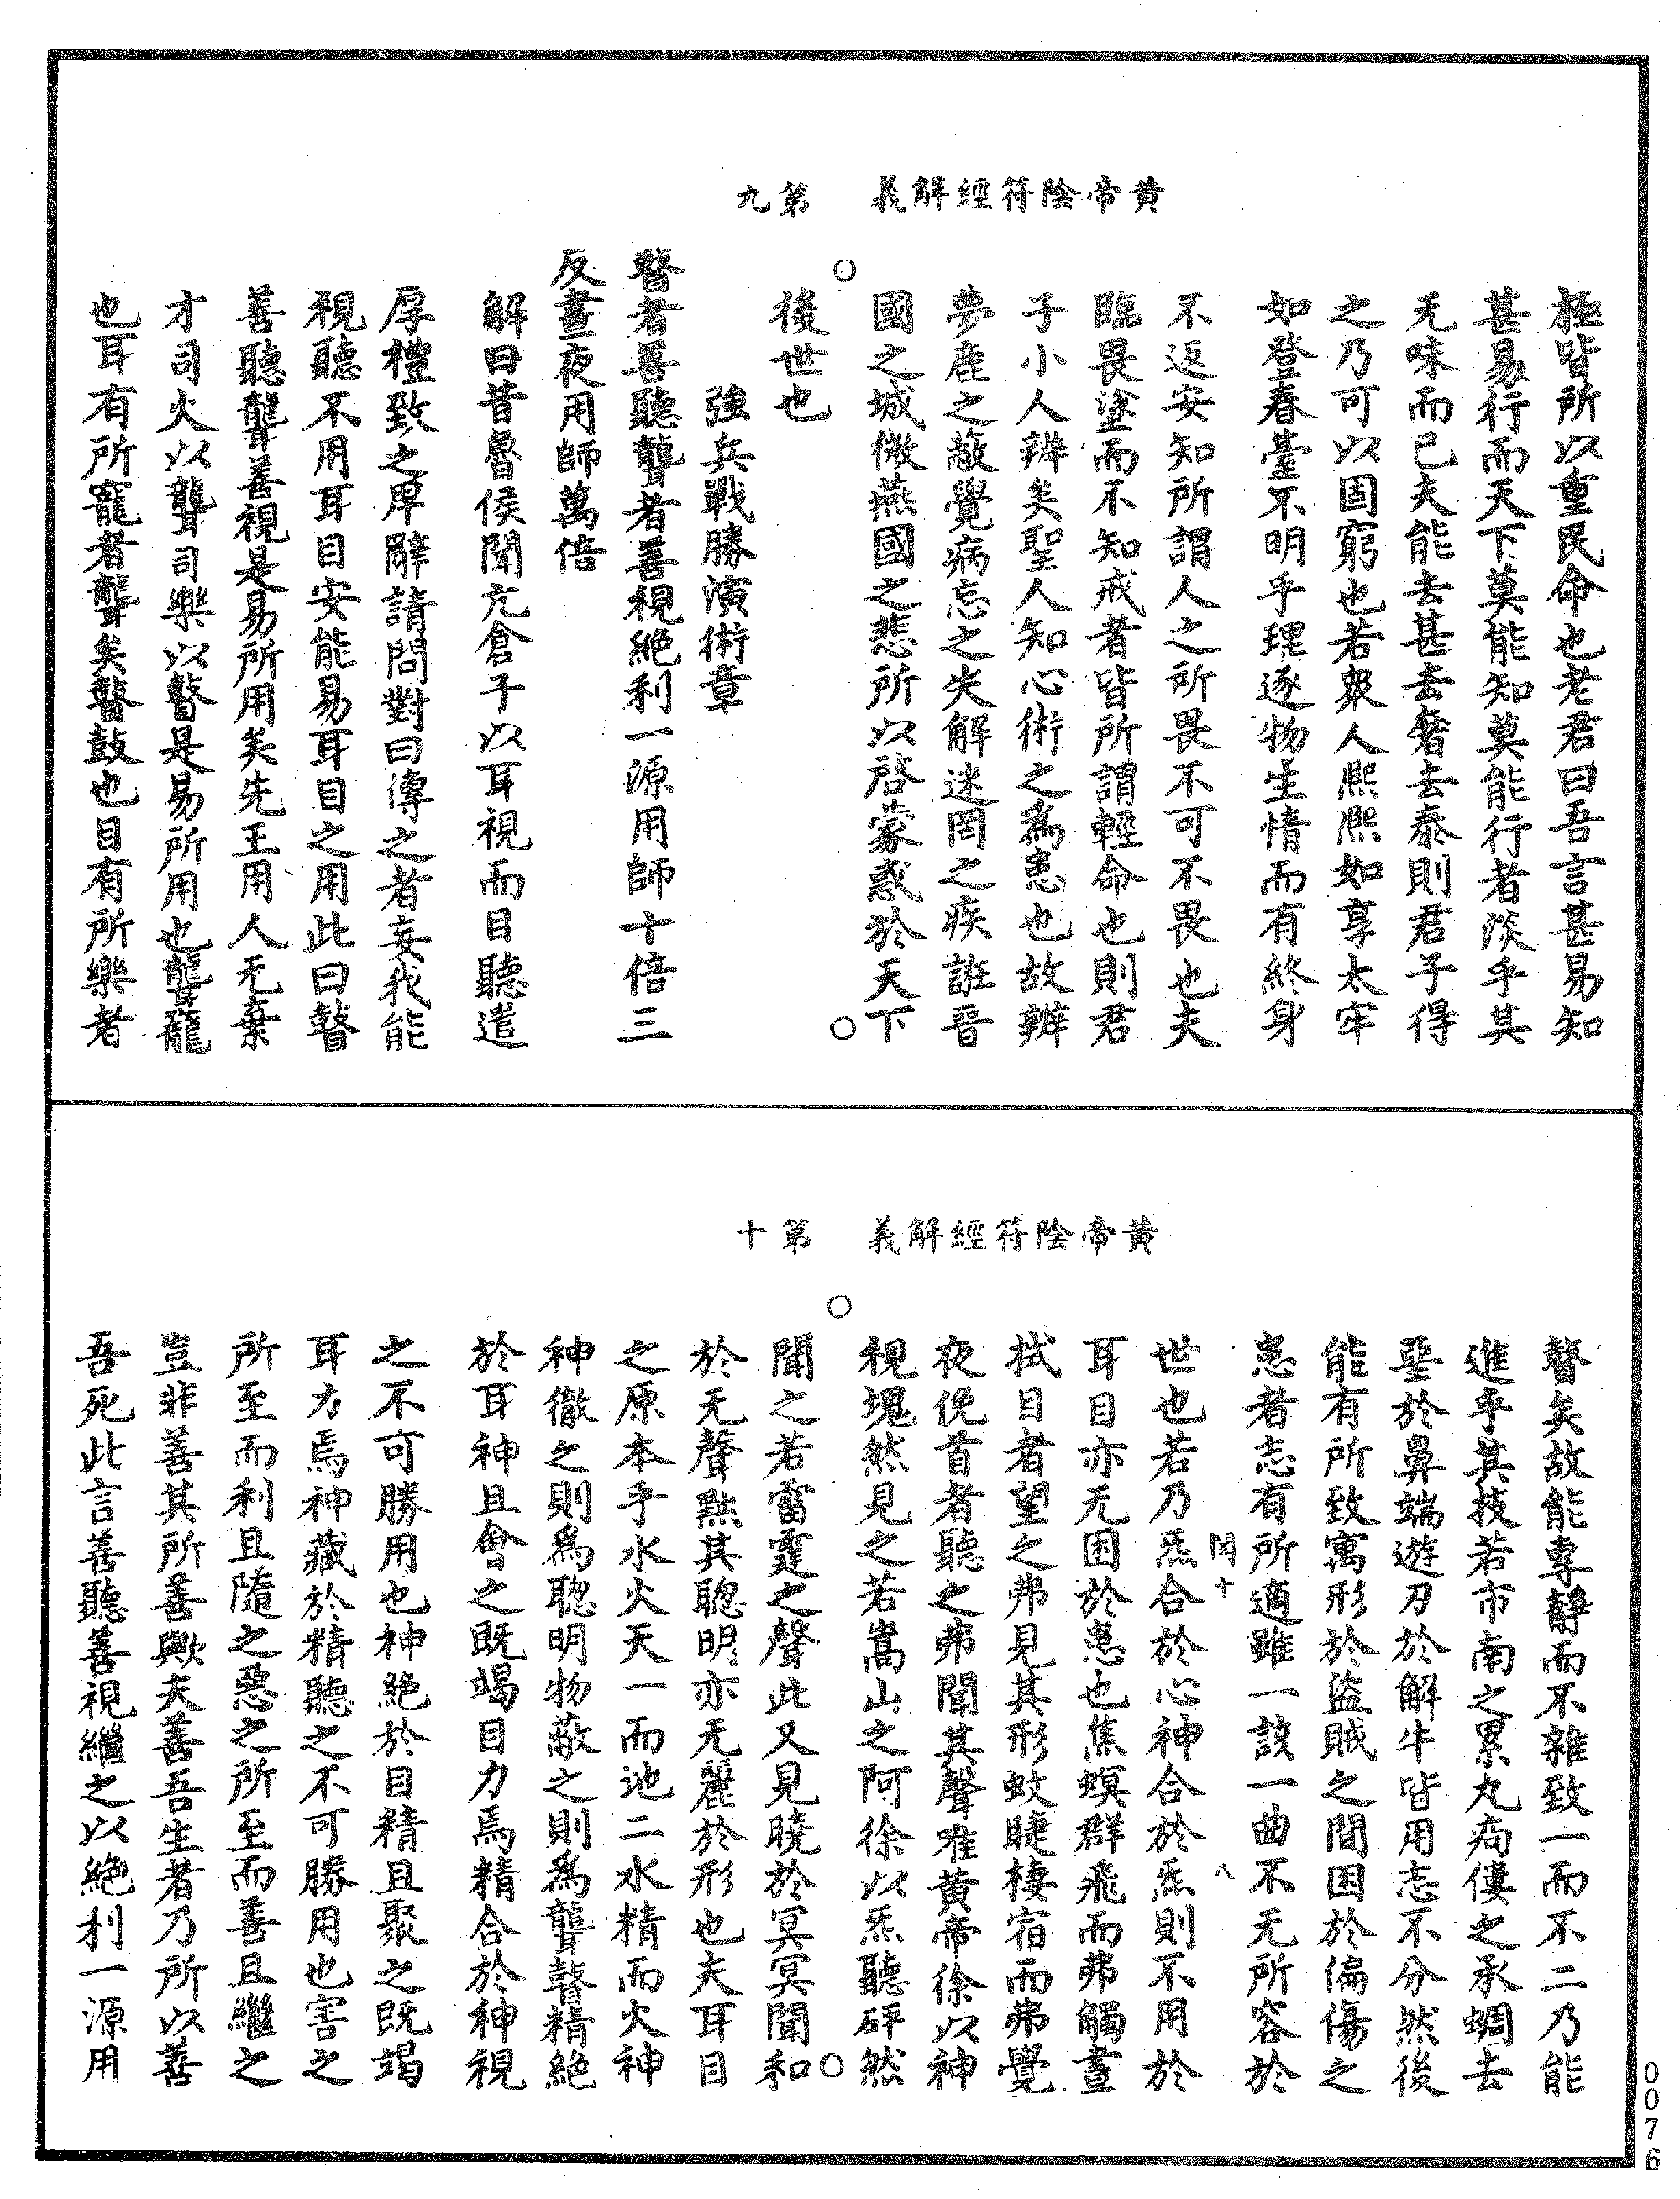 黃帝陰符經解義　第九
極皆所以重民命也老君曰吾言甚易知
甚易行而天下莫能知莫能行者淡乎其
无味而已夫能去甚去奢去泰則君子得
之乃可以固窮也若眾人熙熙如享太牢
如登春臺不明乎理逐物生情而有終身
不返安知所謂人之所畏不可不畏也夫
臨畏塗而不知戒者皆所謂輕命也則君
子小人辨矣聖人知心術之為患也故辨
夢鹿之蔽覺病忘之失解迷罔之疾誑晉
國之城微燕國之悲所以啓蒙惑於天下
後世也
強兵戰勝演術章
瞽者善聽聾者善視絕利一源用師十倍三
反晝夜用師萬倍
解曰昔魯侯聞亢倉子以耳視而目聽遣
厚禮致之卑辭請問對曰傳之者妄我能
視聽不用耳目安能易耳目之用此曰瞽
善聽聾善視是易所用矣先王用人无棄
才司火以聾司樂以瞽是易所用也聾龍
也耳有所寵者聾矣瞽鼓也目有所樂者
黃帝陰符經解義　第十
瞽矣故能專靜而不雜致一而不二乃能
進乎其技若市南之累丸痀僂之承蜩去
堊於鼻端遊刃於解牛皆用志不分然後
能有所致寓形於盜賊之間困於偏傷之
患者志有所適雖一該一曲不无所容於
閏十　八
世也若乃炁合於心神合於炁則不用於
耳目亦无困於患也焦螟群飛而弗觸晝
拭目者望之弗見其形蚊睫棲宿而弗覺
夜俛首者聽之弗聞其聲唯黃帝徐以神
視塊然見之若嵩山之阿徐以炁聽砰然
聞之若雷霆之聲此又見曉於冥冥聞和
於无聲黜其聰明亦无麗於形也夫耳目
之原本乎水火天一而地二水精而火神
神徹之則為聰明物蔽之則為聾瞽精絕
於耳神且會之既竭目力焉精合於神視
之不可勝用也神絕於目精且聚之既竭
耳力焉神藏於精聽之不可勝用也害之
所至而利且隨之惡之所至而善且繼之
豈非善其所善歟夫善吾生者乃所以善
吾死此言善聽善視繼之以絕利一源用
0076